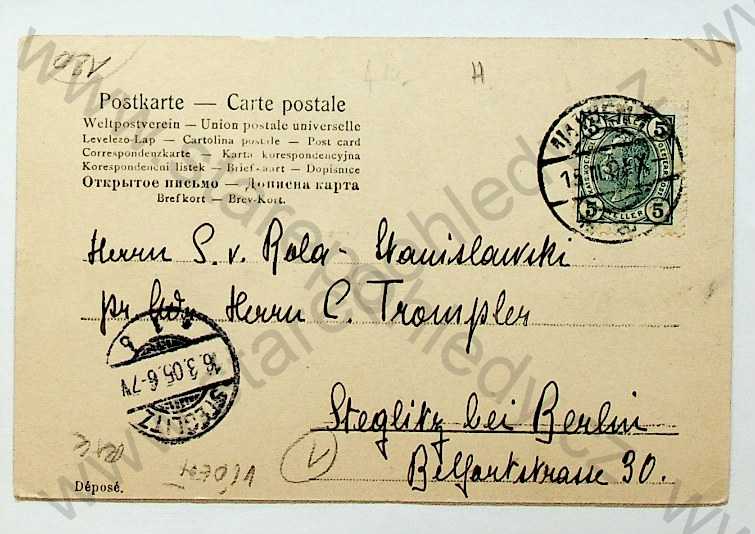 120
H
Postkarte — Carte postale
Weltpostverein – Union postale universelle
Levelezo-Lap – Cartolina postale – Post card
Correspondenzkarte – Karta korespondencyjna
Korespondenční listek – Brief-kaart – Dopisnice
Открытое письмо – Дописна карта
Brefkort – Brev-Kort.
5 5
5 HELLER 5
Herrn S. v. Rola-Stanisławski
pr. Adr. Herrn C. Trompler
Steglitz bei Berlin
Belfortstrasse 30.
16.3.05.6-7V
STEGLITZ
VÍDEŇ
1
Déposé.
www.staropohledy.cz